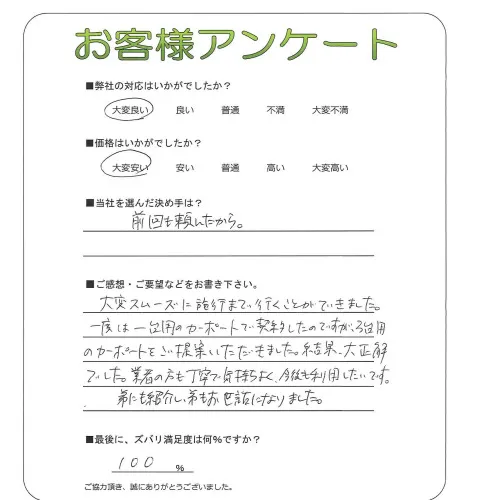 お客様アンケート
■弊社の対応はいかがでしたか？
大変良い 良い 普通 不満 大変不満
■価格はいかがでしたか？
大変安い 安い 普通 高い 大変高い
■当社を選んだ決め手は？
前回も頼んだから。
■ご感想・ご要望などをお書き下さい。
大変スムーズに施行まで行くことができました。
一度は一台用のカーポートで契約したのですが、2台用
のカーポートをご提案いただきました。結果、大正解
でした。業者の方も丁寧で気持ちよく、今後も利用したいです。
弟にも紹介し、弟もお世話になりました。
■最後に、ズバリ満足度は何%ですか？
100 %
ご協力頂き、誠にありがとうございました。